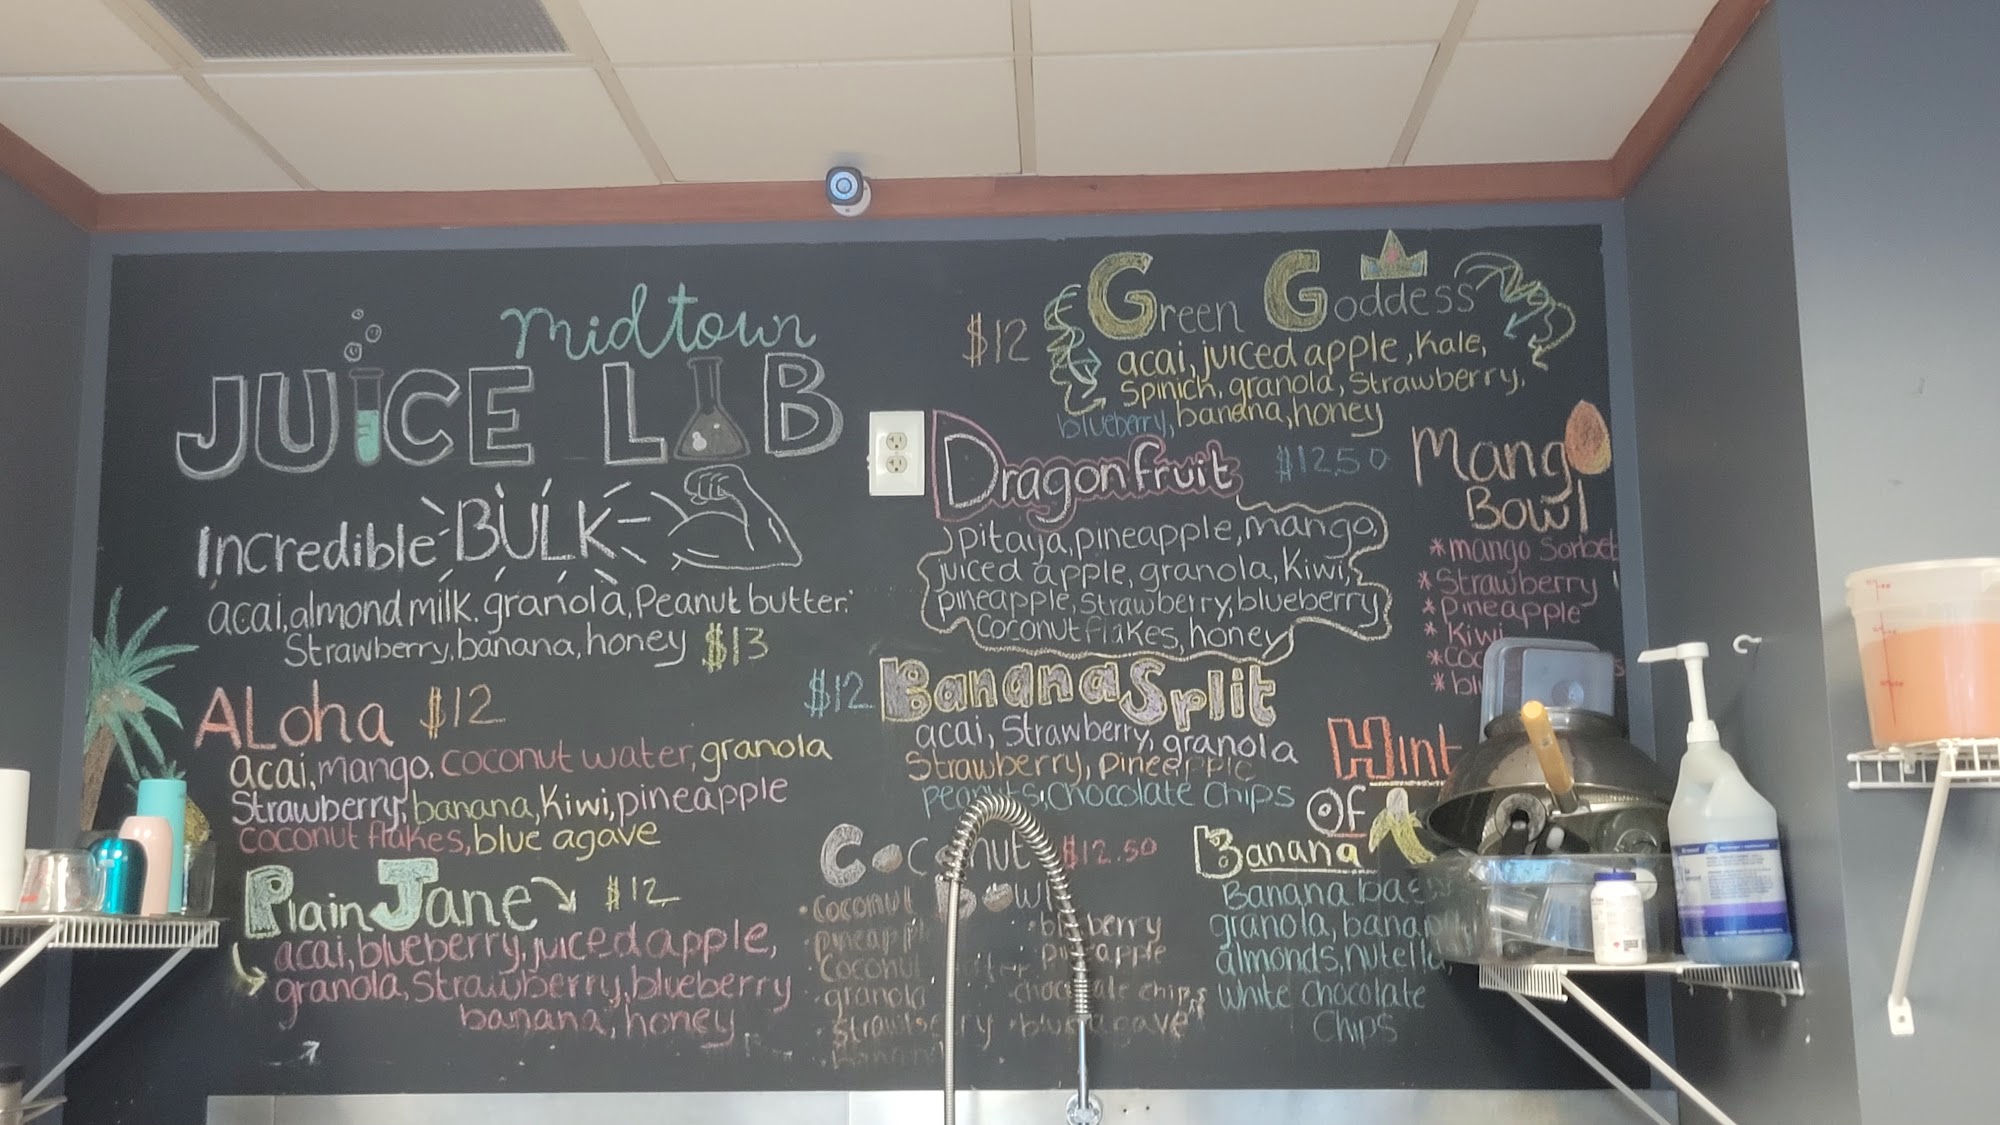 midtown
JUICE LAB
INCREDIBLE BULK
acai, almond milk. granola, Peanut butter.
Strawberry, banana, honey $13
ALoha $12
acai, mango, coconut water, granola
Strawberry, banana, Kiwi, pineapple
coconut flakes, blue agave
Plain Jane $12
acai, blueberry, juiced apple,
granola, Strawberry, blueberry
banana, honey
$12 Green Goddess
acai, juiced apple, Kale,
Spinich, granola, Strawberry,
blueberry, banana, honey
Dragonfruit $12.50
pitaya, pineapple, mango,
juiced apple, granola, Kiwi,
pineapple, Strawberry, blueberry
Coconut flakes, honey
$12 Banana Split
acai, Strawberry, granola
Strawberry, pineapple
peanuts, Chocolate Chips
$12.50
• Coconut
granola
• blueberry
pineapple
• chocolate chips
• blue agave
Mango
Bowl
* mango Sorbet
* Strawberry
* Pineapple
* Kiwi
Hint
OF
Banana
Banana
granola,
almonds, nutella,
White Chocolate
Chips